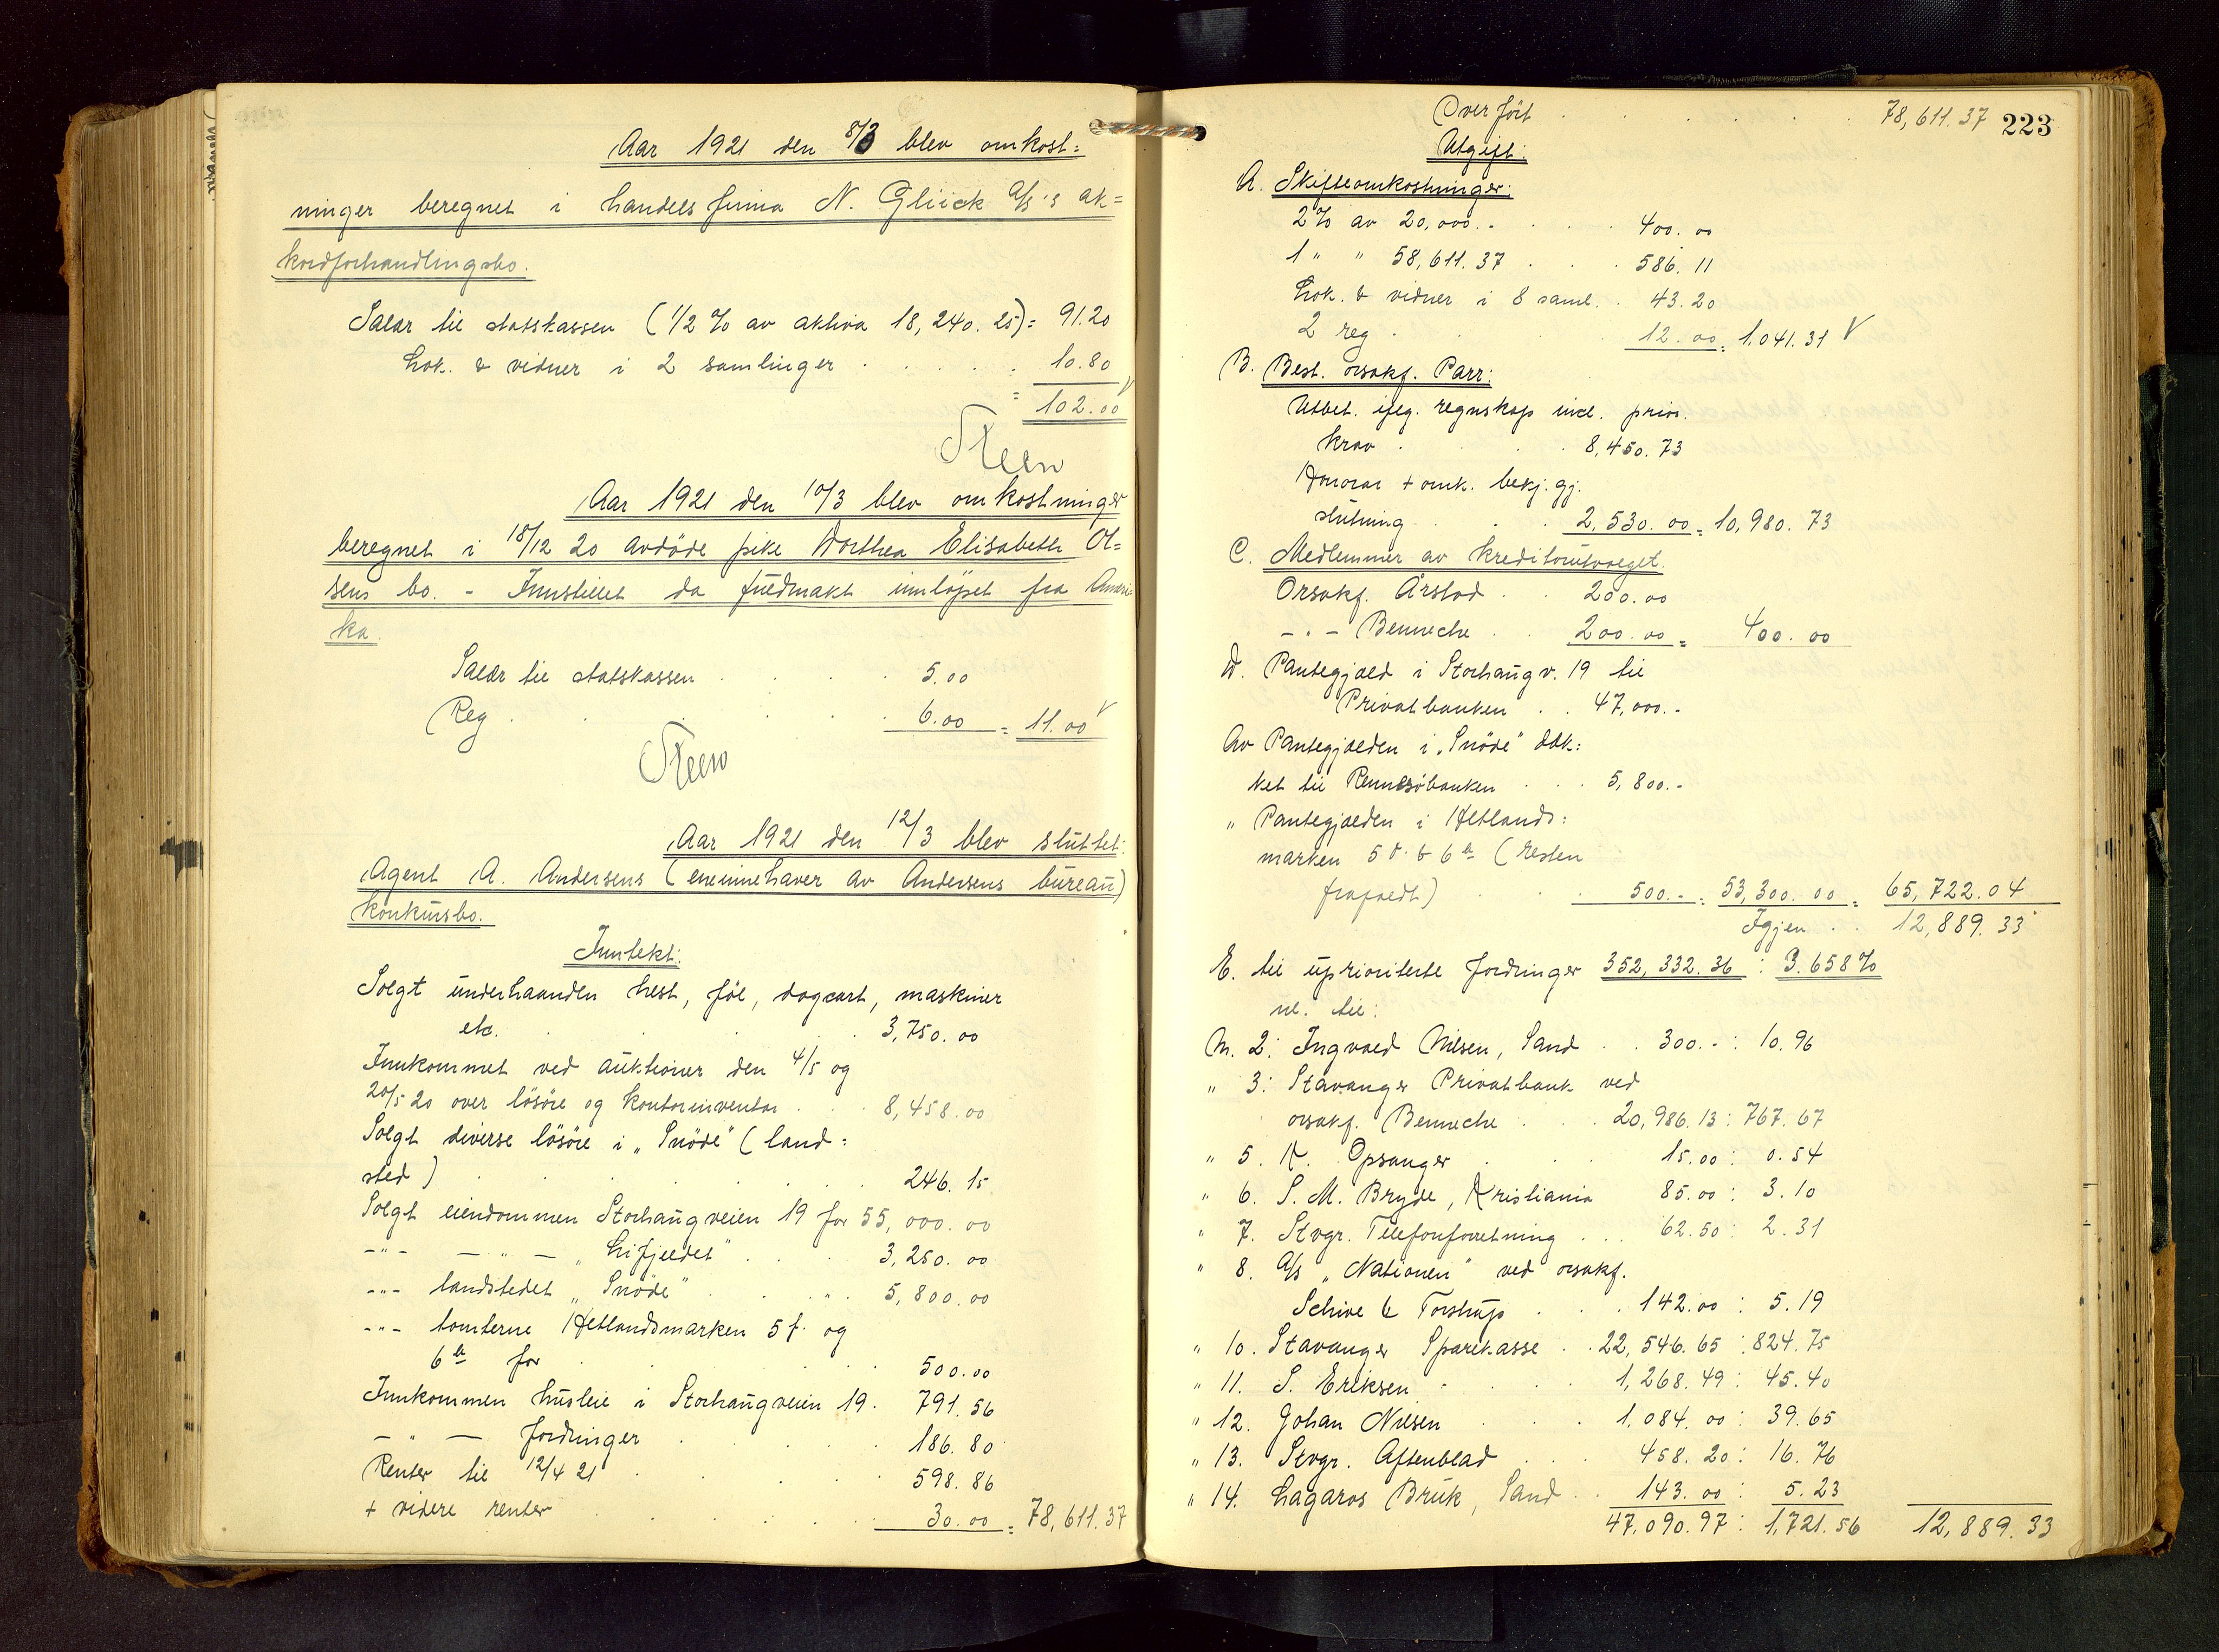 Aar 1921 den 8/3 blev omkost=
ninger beregnet i handelsfirma N. Glück A/S's ak=
kordforhandlingsbo.
Salær til statskassen (1/2 % av aktiva 18,240.25) = 91.20
Lok. & vidner i 2 samlinger . . . . . 10.80
= 102.00 V
Steen
Aar 1921 den 10/3 blev omkostninger
beregnet i 18/12 20 avdöde pike Dorthea Elisabeth Ol=
sens bo. - Innstillet da fuldmakt innlöpet fra Ameri=
ka.
Salær til statskassen . . . . 5.00
Reg . . . . . 6.00 = 11.00 V
Steen
Aar 1921 den 12/3 blev sluttet
Agent A. Andersens (eneinnehaver av Andersens bureau)
konkursbo.
Inntekt:
Solgt underhaanden hest, föl, dogcart, maskiner
etc. . . . 3,750.00
Innkommet ved auktioner den 4/5 og
20/5 20 over lösöre og kontorinventar . . . 8,458.00
Solgt diverse lösöre i „Snöde" (land=
sted) . . . . . . 246.15
Solgt eiendommen Storhaugveien 19 for 55,000.00
-"- — " — „Lifjeldet" . . . 3,250.00
-"- landstedet „Snöde" . . . . 5,800.00
-"- tomterne Hetlandsmarken 5 f. og
6 for . . . . . . 500.00
Innkommen husleie i Storhaugveien 19 . 791.56
— " — fordringer . . . . . 186.80
Renter til 12/4 21 . . . . . 598.86
+ videre renter . . . . . . 30.00 = 78,611.37
223
Overfört . . . . . 78,611.37
Utgift:
A. Skifteomkostninger:
2% av 20,000.- . . . 400.00
1 " " 58,611.37 . . . 586.11
Lok. & vidner i 8 saml. . 43.20
2 reg . . . 12.00 = 1,041.31 V
B. Best. orsakf. Parr:
Utbet. iflg. regnskap incl. prior.
krav . . . 8,450.73
Honorar + omk. bekj.gj.
slutning . . . 2,530.00 = 10,980.73
C. Medlemmer av kreditorutvalget.
Orsakf. Årstad . . 200.00
-"- Benneche . . 200.00 = 400.00
D. Pantegjæld i Storhaugv. 19 til
Privatbanken . . 47,000.-
Av Pantegjælden i „Snöde" dæk=
ket til Rennesöbanken . . . 5,800.-
" Pantegjælden i Hetlands=
marken 5 & 6 (resten
frafaldt) . . . 500.- = 53,300.00 = 65,722.04
Igjen . . 12,889.33
E. til uprioriterte fordringer 352,332.36 : 3.658%
nl. til:
N. 2: Ingvald Nilsen, Sand . . 300.- : 10.96
" 3: Stavanger Privatbank ved
orsakf. Benneche . . . 20,986.13 : 767.67
" 5. K. Opsanger . . . 15.00 : 0.54
" 6. S. M. Bryde, Kristiania 85.00 : 3.10
" 7. Stvgr. Telefonforretning . . . 62.50 : 2.31
" 8. A/S „Nationen" ved orsakf.
Schive & Torstrup . . . 142.00 : 5.19
" 10. Stavanger Sparekasse . . 22,546.65 : 824.75
" 11. S. Eriksen . . . . 1,268.49 : 45.40
" 12. Johan Nilsen . . . 1,084.00 : 39.65
" 13. Stvgr. Aftenblad . . . 458.20 : 16.76
" 14. Lagaros Bruk, Sand . . 143.00 : 5.23
47,090.97 : 1,721.56 12,889.33